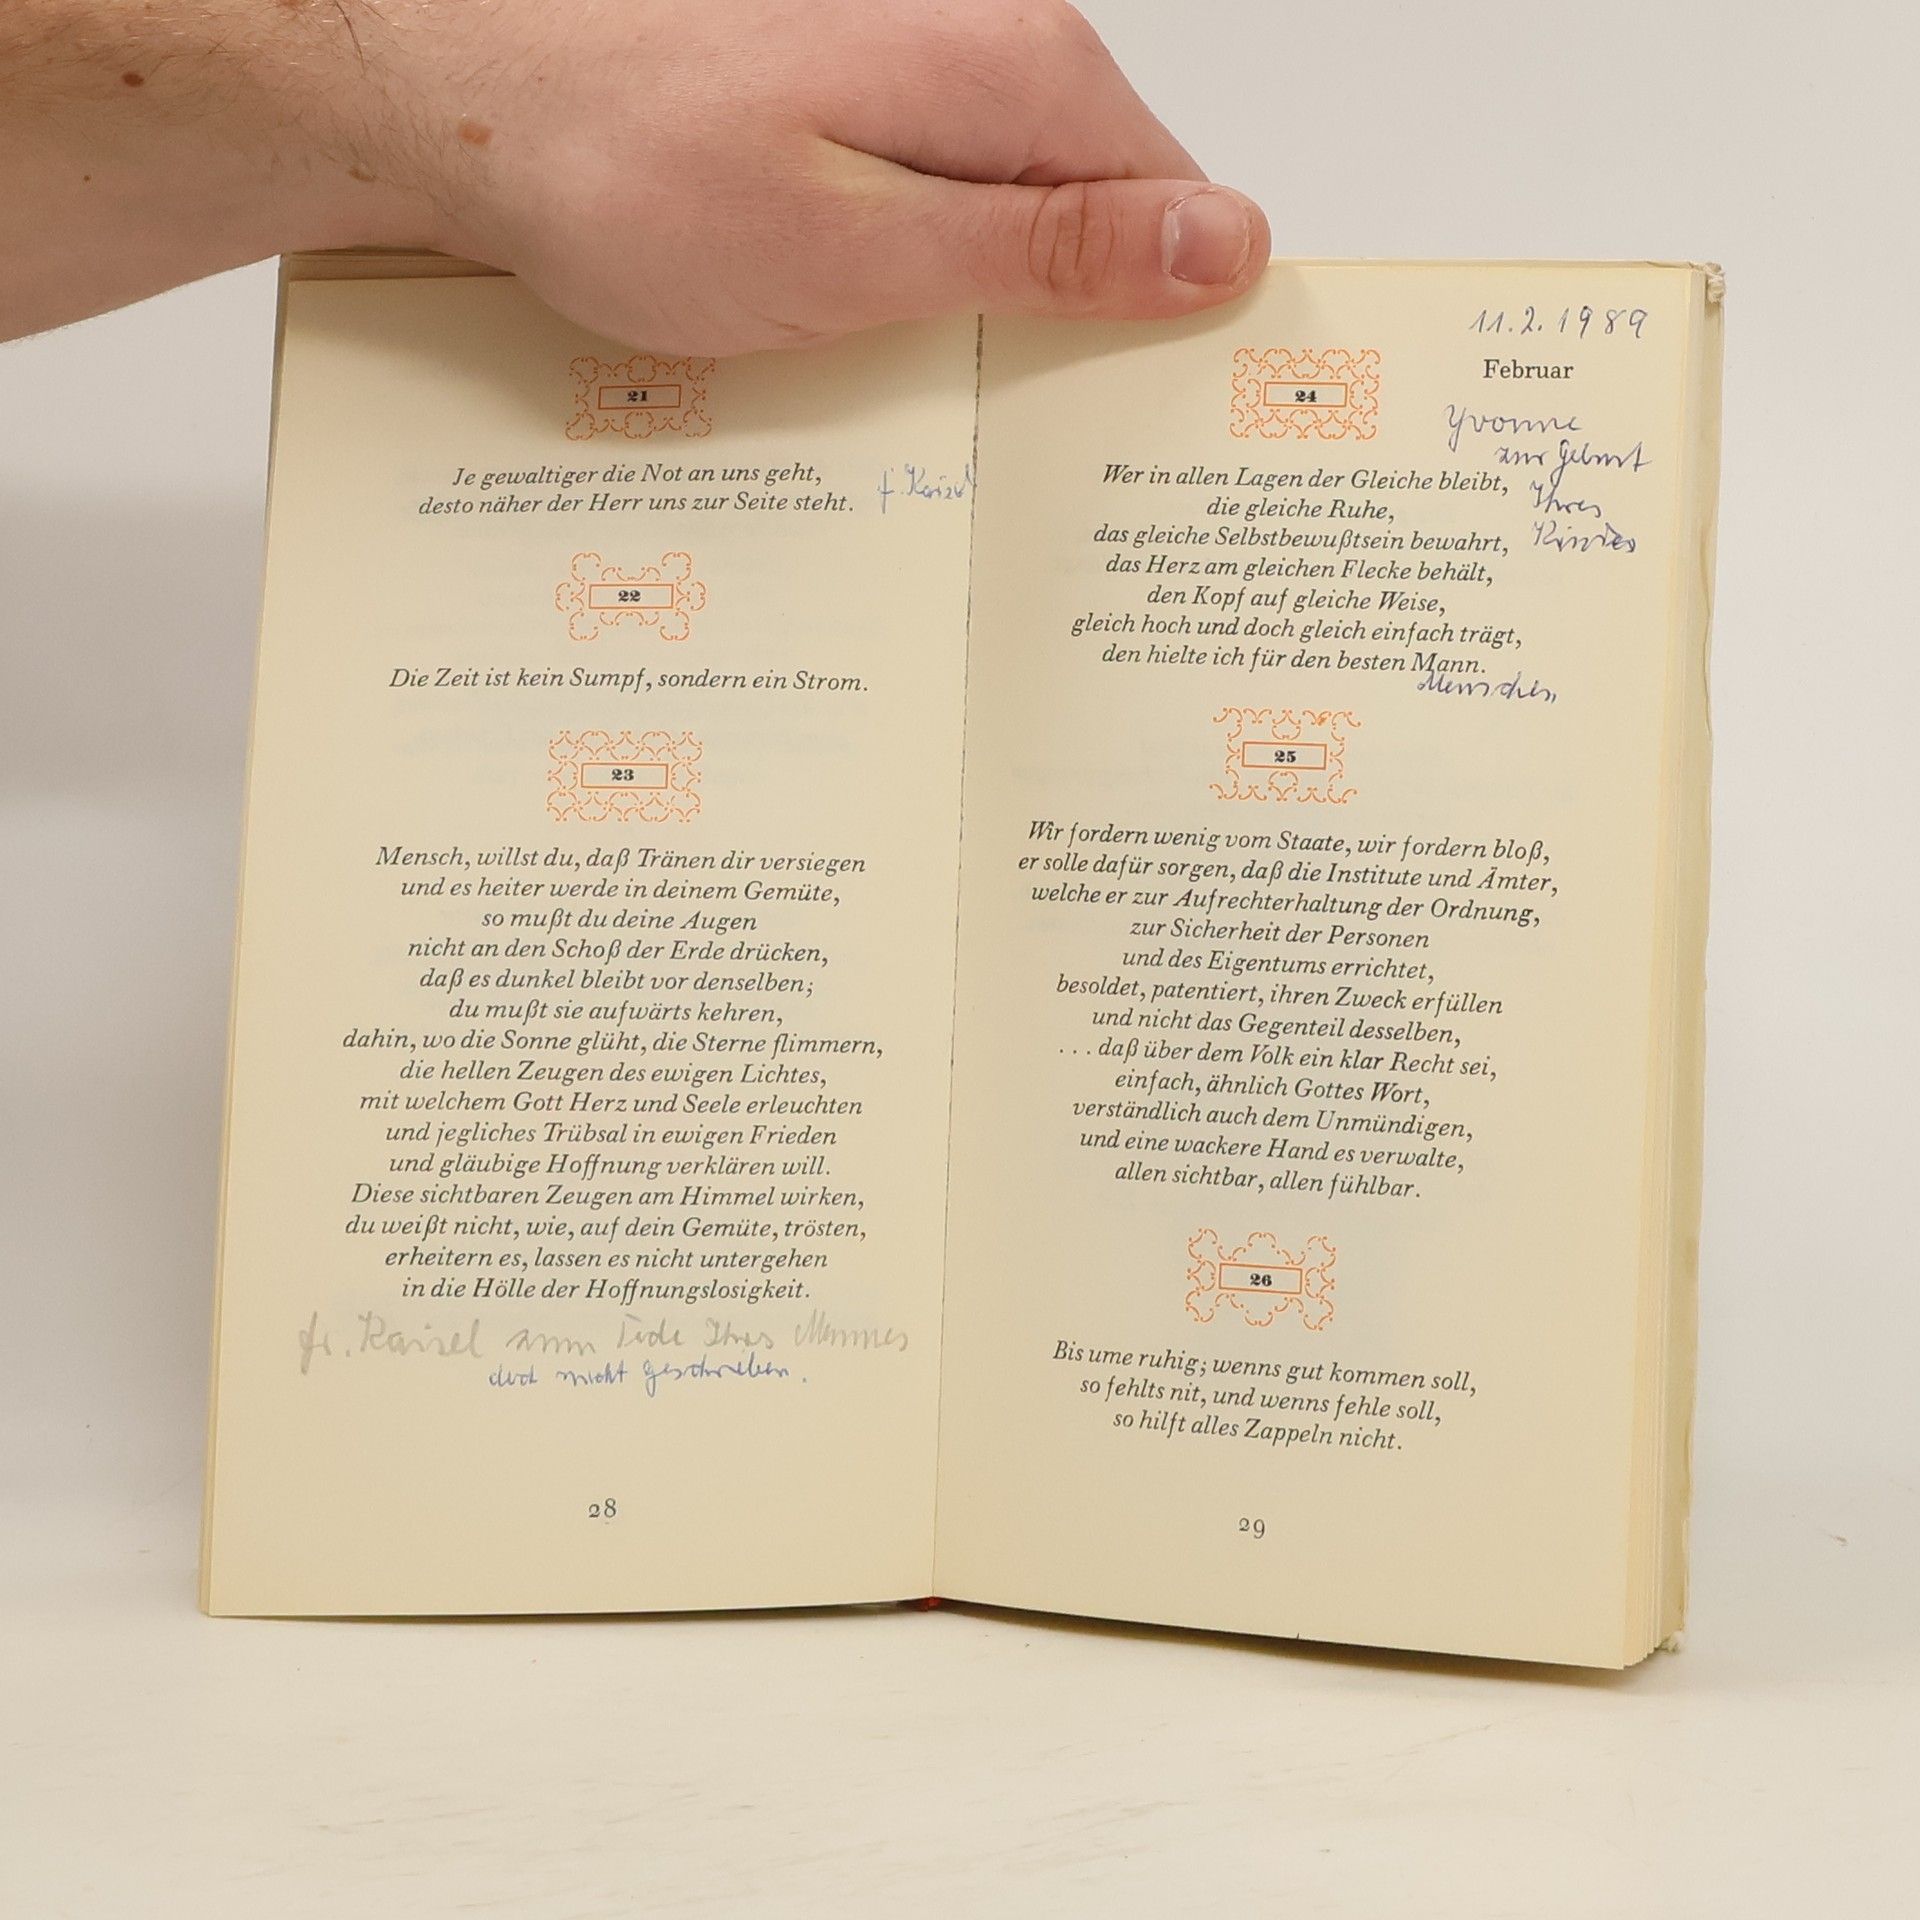 21
Je gewaltiger die Not an uns geht,
desto näher der Herr uns zur Seite steht.
22
Die Zeit ist kein Sumpf, sondern ein Strom.
23
Mensch, willst du, daß Tränen dir versiegen
und es heiter werde in deinem Gemüte,
so mußt du deine Augen
nicht an den Schoß der Erde drücken,
daß es dunkel bleibt vor denselben;
du mußt sie aufwärts kehren,
dahin, wo die Sonne glüht, die Sterne flimmern,
die hellen Zeugen des ewigen Lichtes,
mit welchem Gott Herz und Seele erleuchten
und jegliches Trübsal in ewigen Frieden
und gläubige Hoffnung verklären will.
Diese sichtbaren Zeugen am Himmel wirken,
du weißt nicht, wie, auf dein Gemüte, trösten,
erheitern es, lassen es nicht untergehen
in die Hölle der Hoffnungslosigkeit.
fr. zum Tode Ihres Mannes
nicht geschrieben.
28
11.2.1989
Februar
24
Yvonne
zur Geburt
Ihres
Kindes
Wer in allen Lagen der Gleiche bleibt,
die gleiche Ruhe,
das gleiche Selbstbewußtsein bewahrt,
das Herz am gleichen Flecke behält,
den Kopf auf gleiche Weise,
gleich hoch und doch gleich einfach trägt,
den hielte ich für den besten Mann.
Menschen
25
Wir fordern wenig vom Staate, wir fordern bloß,
er solle dafür sorgen, daß die Institute und Ämter,
welche er zur Aufrechterhaltung der Ordnung,
zur Sicherheit der Personen
und des Eigentums errichtet,
besoldet, patentiert, ihren Zweck erfüllen
und nicht das Gegenteil desselben,
. . . daß über dem Volk ein klar Recht sei,
einfach, ähnlich Gottes Wort,
verständlich auch dem Unmündigen,
und eine wackere Hand es verwalte,
allen sichtbar, allen fühlbar.
26
Bis ume ruhig; wenns gut kommen soll,
so fehlts nit, und wenns fehle soll,
so hilft alles Zappeln nicht.
29